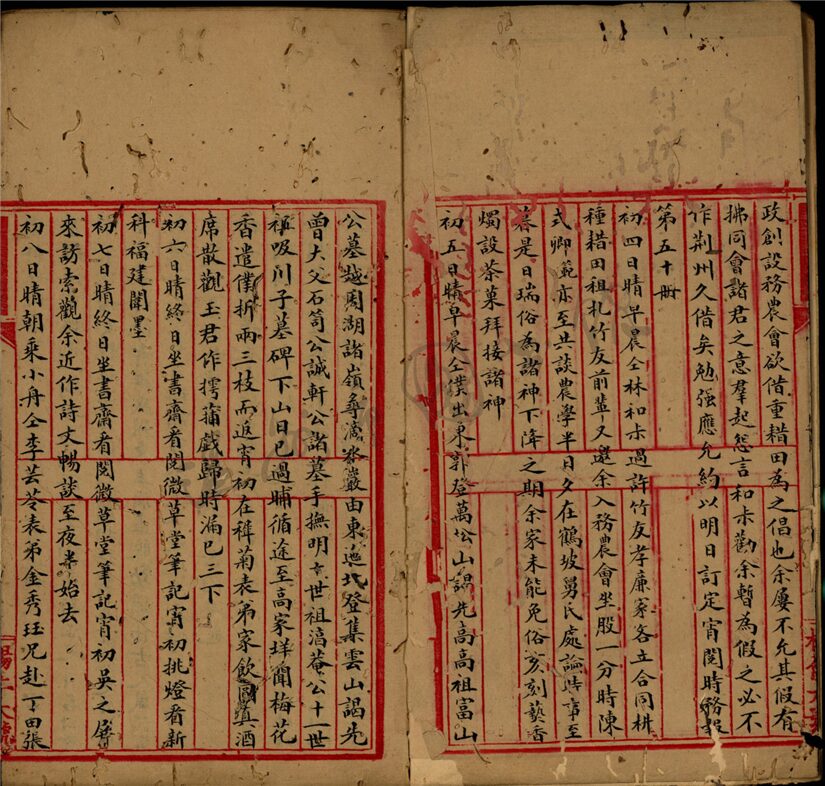 政創設務農會欲借重耤田為之倡也余屢不允其假看
拂同會諸君之意羣起怨言和卡勸余暫為假之必不
作荆州久借矣勉强應允約以明日訂定宵閱時務報
第五十冊
初四日晴早晨仝林和卡過許竹友孝廉家各立合同耕
種耤田租札竹友前輩又邀余入務農會坐股一分時陳
式卿範亦至共談農學半日夕在鶴坡舅氏處論時事至
暮是日瑞俗為諸神下降之期余家未能免俗亥刻藝香
燭設茶菓拜接諸神
初五日晴早晨仝僕出東郭登萬松山謁先高高祖富山
公墓越周湖諸嶺尋滴水巖由東巡北登集雲山謁先
曾大父石笥公誠軒公諸墓手撫明十世祖滈菴公十一世
祖吸川子墓碑下山日已過晡循途至高家垟聞梅花
香遣僕折兩三枝而返宵初在稚菊表弟家飲酒
席散觀王君作摴蒲戲歸時漏已三下
初六日晴終日坐書齋看閱微草堂筆記宵初挑燈看新
科福建闈墨
初七日晴終日坐書齋看閱微草堂筆記宵初吳之屏
來訪索觀余近作詩文暢談至夜半始去
初八日晴朝乘小舟仝李芸苓表弟金秀珏兄赴丁田張